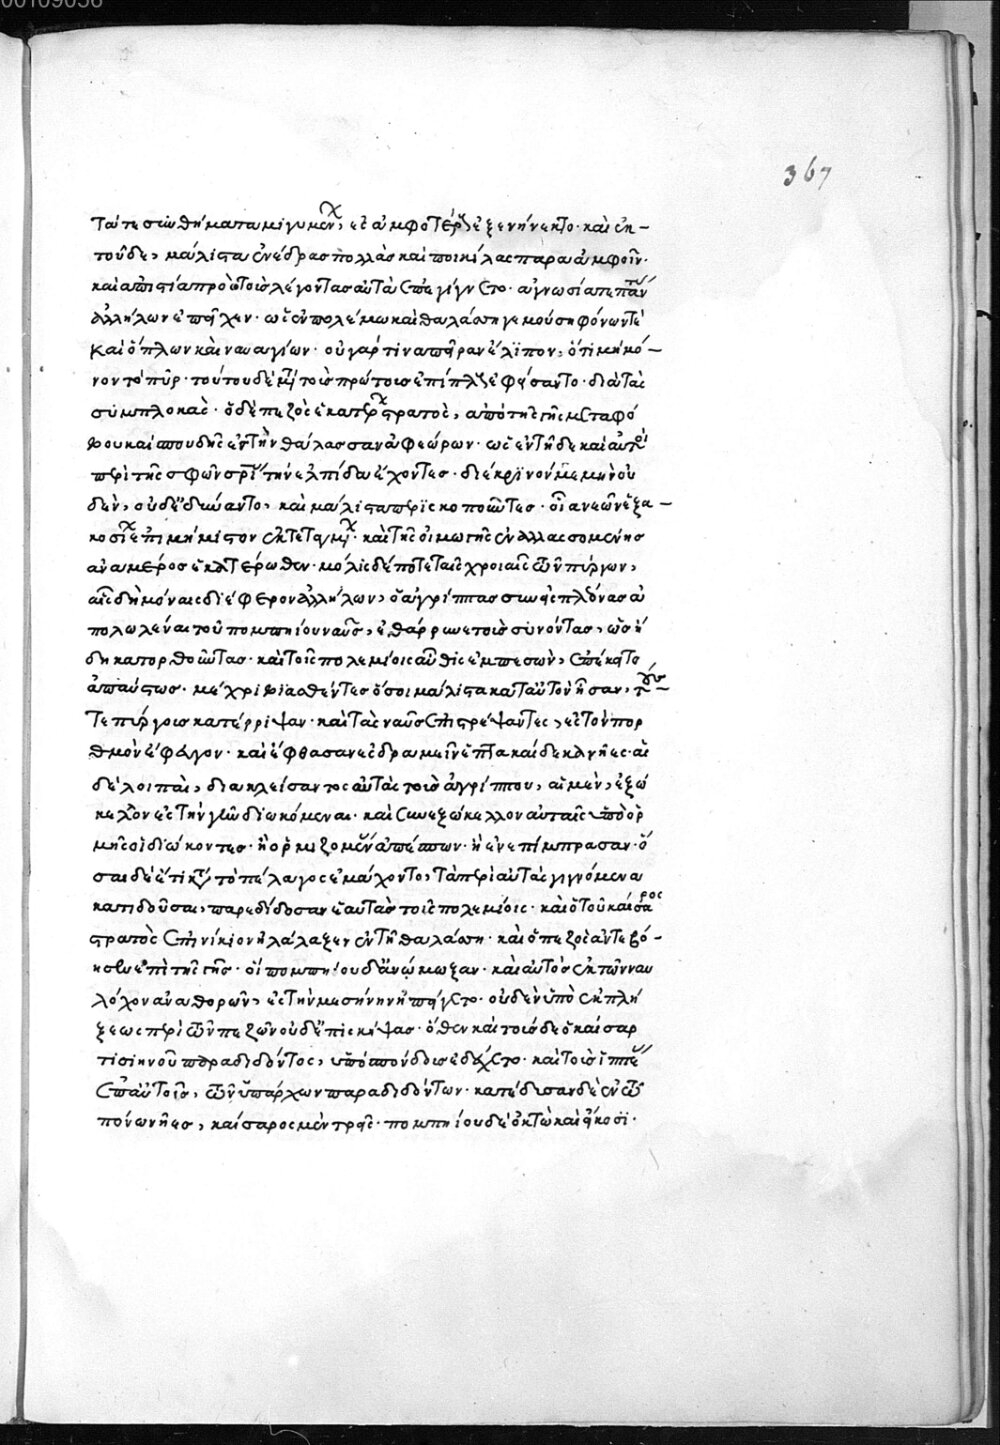 00109056
367
τά τε συνθήματα μιγυμεν, ἐς ἀμφοτέρους ἐξενήνεκτο· καὶ ἐκ
τοῦδε, μάλιστα ἐνέδρας πολλὰς καὶ ποικίλας παρὰ ἀμφοῖν·
καὶ ἀπιστία πρὸς τοὺς λέγοντας αὐτὰ ἐπεγίγνετο· ἀγνωσία τε πάντων
ἀλλήλων ἐπεῖχεν· ὡς ἐν πολέμω καὶ θαλάσση γεμούση φόνων τὲ
καὶ ὅπλων καὶ ναυαγίων· οὐ γάρ τιν ἀπεῖραν ἔλιπον, ὅτι μὴ μό
νον τὸ πῦρ· τούτου δὲ μετὰ τοὺς πρώτους ἐπίπλους ἐφείσαντο· διὰ τὰς
συμπλοκάς· ὁ δὲ πεζὸς ἑκατέρων στρατὸς, ἀπὸ τῆς γῆς μετὰ φό
βου καὶ σπουδῆς ἐς τὴν θάλασσαν ἀφεώρων· ὡς ἐν τῆδε καὶ αὐτοὶ
περὶ τῆς σφῶν σρίας τὴν ἐλπίδα ἔχοντες· διέκρινον μὲν μὴν οὐ
δὲν, οὐδὲ ἐδύναντο, καὶ μάλιστα περισκοποῦντες· οἷα νεῶν ἑξα
κοσίων ἐπιμήμιστον ἐκτεταγμένων· καὶ τῆς οἰμωγῆς ἐναλλασσομένης
ἀνὰ μέρος ἑκατέρωθεν· μόλις δέ ποτε ταῖς χροιαῖς τῶν πύργων,
αἷς δὴ μόναις διέφερον ἀλλήλων, ὁ ἀγρίππας συνεὶς πλέονας ἀ
πολωλέναι τοῦ πομπηίου ναῦς, ἐθάρρυνε τοὺς συνόντας, ὡς ἤ
δη κατορθοῦντας· καὶ τοῖς πολεμίοις αὖθις ἐμπεσὼν, ἐπέκειτο
ἀπαύστως· μέχρι βιασθέντες ὅσοι μάλιστα κατ αὐτὸν ἦσαν, τούς
τε πύργους κατέρριψαν· καὶ τὰς ναῦς ἐπιστρέψαντες, ἐς τὸν πορ
θμὸν ἔφυγον· καὶ ἔφθασαν ἐσδραμεῖν ἑπτακαίδεκα νῆες· αἱ
δὲ λοιπαὶ, διακλείσαντος αὐτὰς τοῦ ἀγρίππου, αἱ μὲν, ἐξώ
κελλον ἐς τὴν γῆν διωκόμεναι· καὶ συνεξώκελλον αὐταῖς ὑπὸ ὁρ
μῆς οἱ διώκοντες· ἢ ὁρμιζομένας ἀπέσπων· ἢ ἐνεπίμπρασαν· ὅ
σαι δὲ ἔτι κατὰ τὸ πέλαγος ἐμάχοντο, τὰ περὶ αὐτὰς γιγνόμενα
κατιδοῦσαι, παρεδίδοσαν ἑαυτὰς τοῖς πολεμίοις· καὶ ὁ τοῦ καίσαρος
στρατὸς ἐπινίκιον ἠλάλαξεν ἐν τῆ θαλάσση· καὶ ὁ πεζὸς ἀντεβό
ησεν ἐπὶ τῆς γῆς· οἱ πομπηίου δ ἀνώμωξαν· καὶ αὐτὸς ἐκ τῶν ναυ
λόχον ἀναθορὼν, ἐς τὴν μεσήνην ἠπείγετο· οὐδὲν ὑπὸ ἐκπλή
ξεως περὶ τῶν πεζῶν οὐδ ἐπισκήψας· ὅθεν καὶ τούσδε ὁ καῖσαρ
τισιηνοῦ παραδιδόντος, ὑπόσπονδους ἐδέχετο· καὶ τοὺς ἱππέας
ἐπ αὐτοῖς, τῶν ἱππάρχων παραδιδόντων· κατέδυσαν δὲ ἐν τῶ
πόνω νῆες, καίσαρος μὲν τρεῖς· πομπηίου δὲ ὀκτὼ καὶ εἴκοσι·